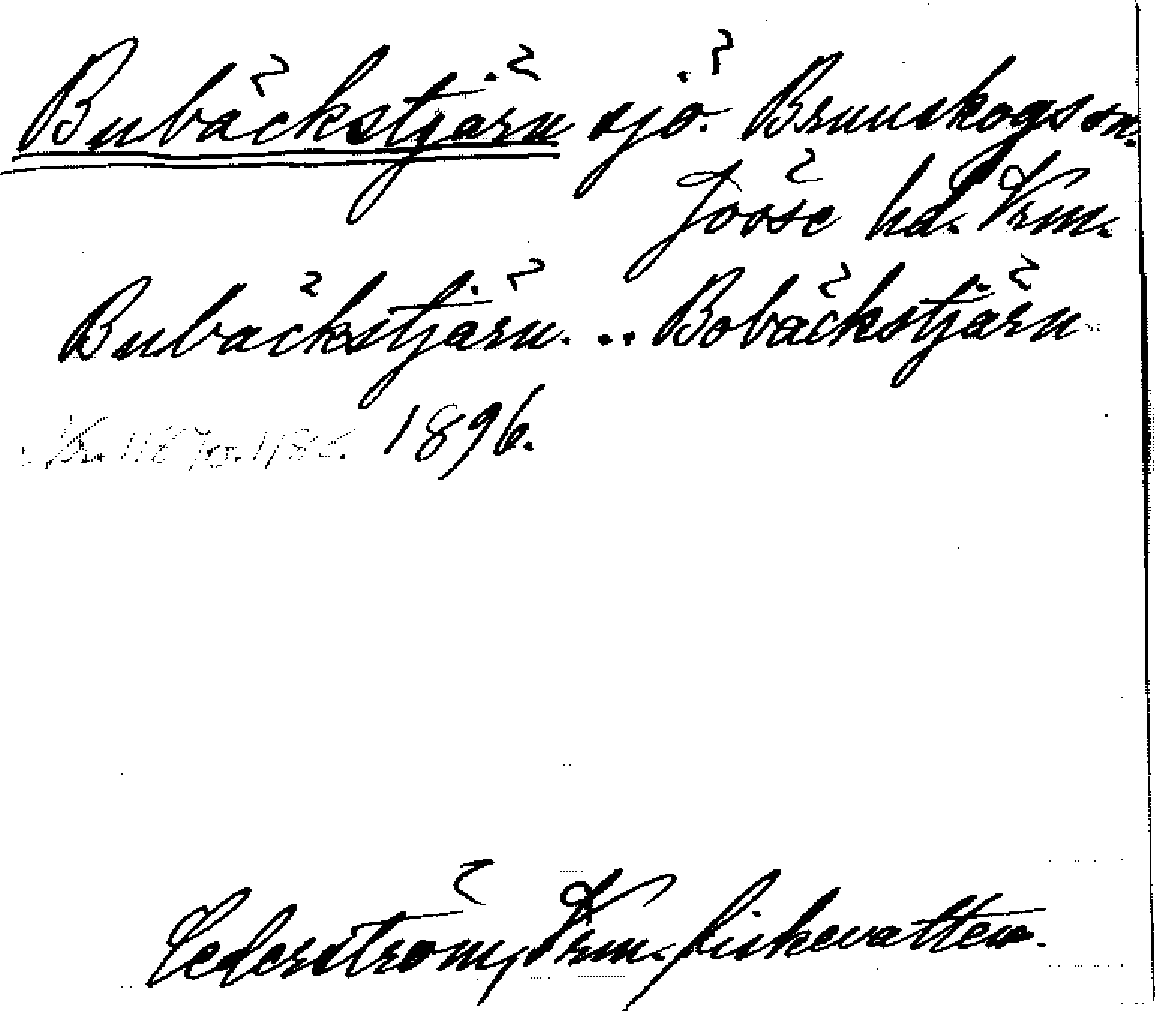 Bubäckstjärn sjö. Brunskogs sn.
Jösse hd. Vrm.
Bubäckstjärn. .. Bobäckstjärn
1896.
Cederström, Vrm. fiskevatten.